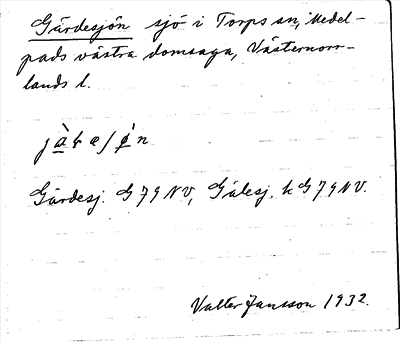 Gärdesjön sjö i Torps sn, Medel-
pads västra domsaga, Västernorr-
lands l.
Gärdesj. G79NV, Gälesj. k G79NV.
Valter Jansson 1932.